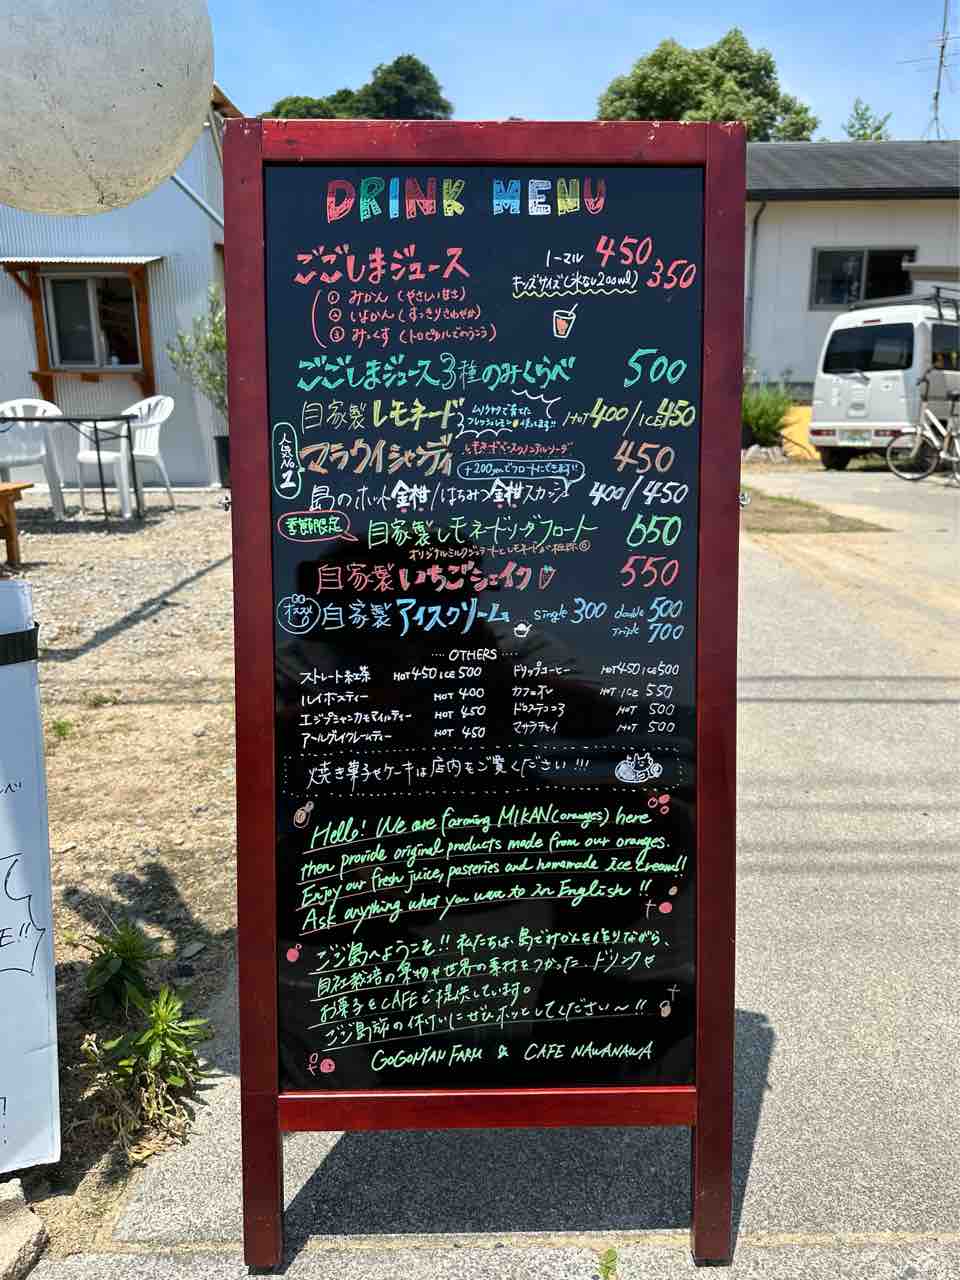 DRINK MENU
ごごしまジュース ノーマル 450
キッズサイズ(氷なし200ml) 350
① みかん(やさしい甘さ)
② いよかん(すっきりさわやか)
③ みっくす(トロピカルでのうこう)
ごごしまジュース3種のみくらべ 500
自家製レモネード HOT400/ICE450
人気No.1
マラウイシャンディ レモネードベースのノンアルソーダ 450
+200yenでフロートにできます!!
島のホット金柑/はちみつ金柑スカッシュ 400/450
季節限定
自家製レモネードソーダフロート 650
自家製いちごシェイク 550
オススメ
自家製アイスクリーム single 300 double 500
Triple 700
OTHERS
ストレート紅茶 HOT450 ICE500
ルイボスティー HOT 400
エジプシャンカモマイルティー HOT 450
アールグレイクレームティー HOT 450
ドリップコーヒー HOT450 ICE500
カフェオレ HOT ICE 550
ドロステココア HOT 500
マサラチャイ HOT 500
焼き菓子やケーキは店内をご覧ください!!!
Hello! We are farming MIKAN(oranges) here
then provide original products made from our oranges.
Enjoy our fresh juice, pasteries and homemade ice cream!!
Ask anything what you want to in English!!
ごご島へようこそ!! 私たちは、島でみかんを作りながら、
自社栽培の果物や世界の素材をつかった、ドリンクや
お菓子をCAFEで提供しています。
ごご島旅の休けいにぜひホッとしてください〜!!
GOGONYAN FARM & CAFE NAWANAWA